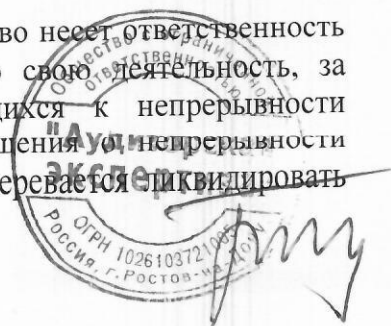 во несет ответственность
свою деятельность, за
щихся к непрерывности
щения о непрерывности
еревается ликвидировать
Общество с ограниченной
ответственностью
"Аудит
Эксперт
ОГРН 1026103721
Россия, г. Ростов-на-Дону